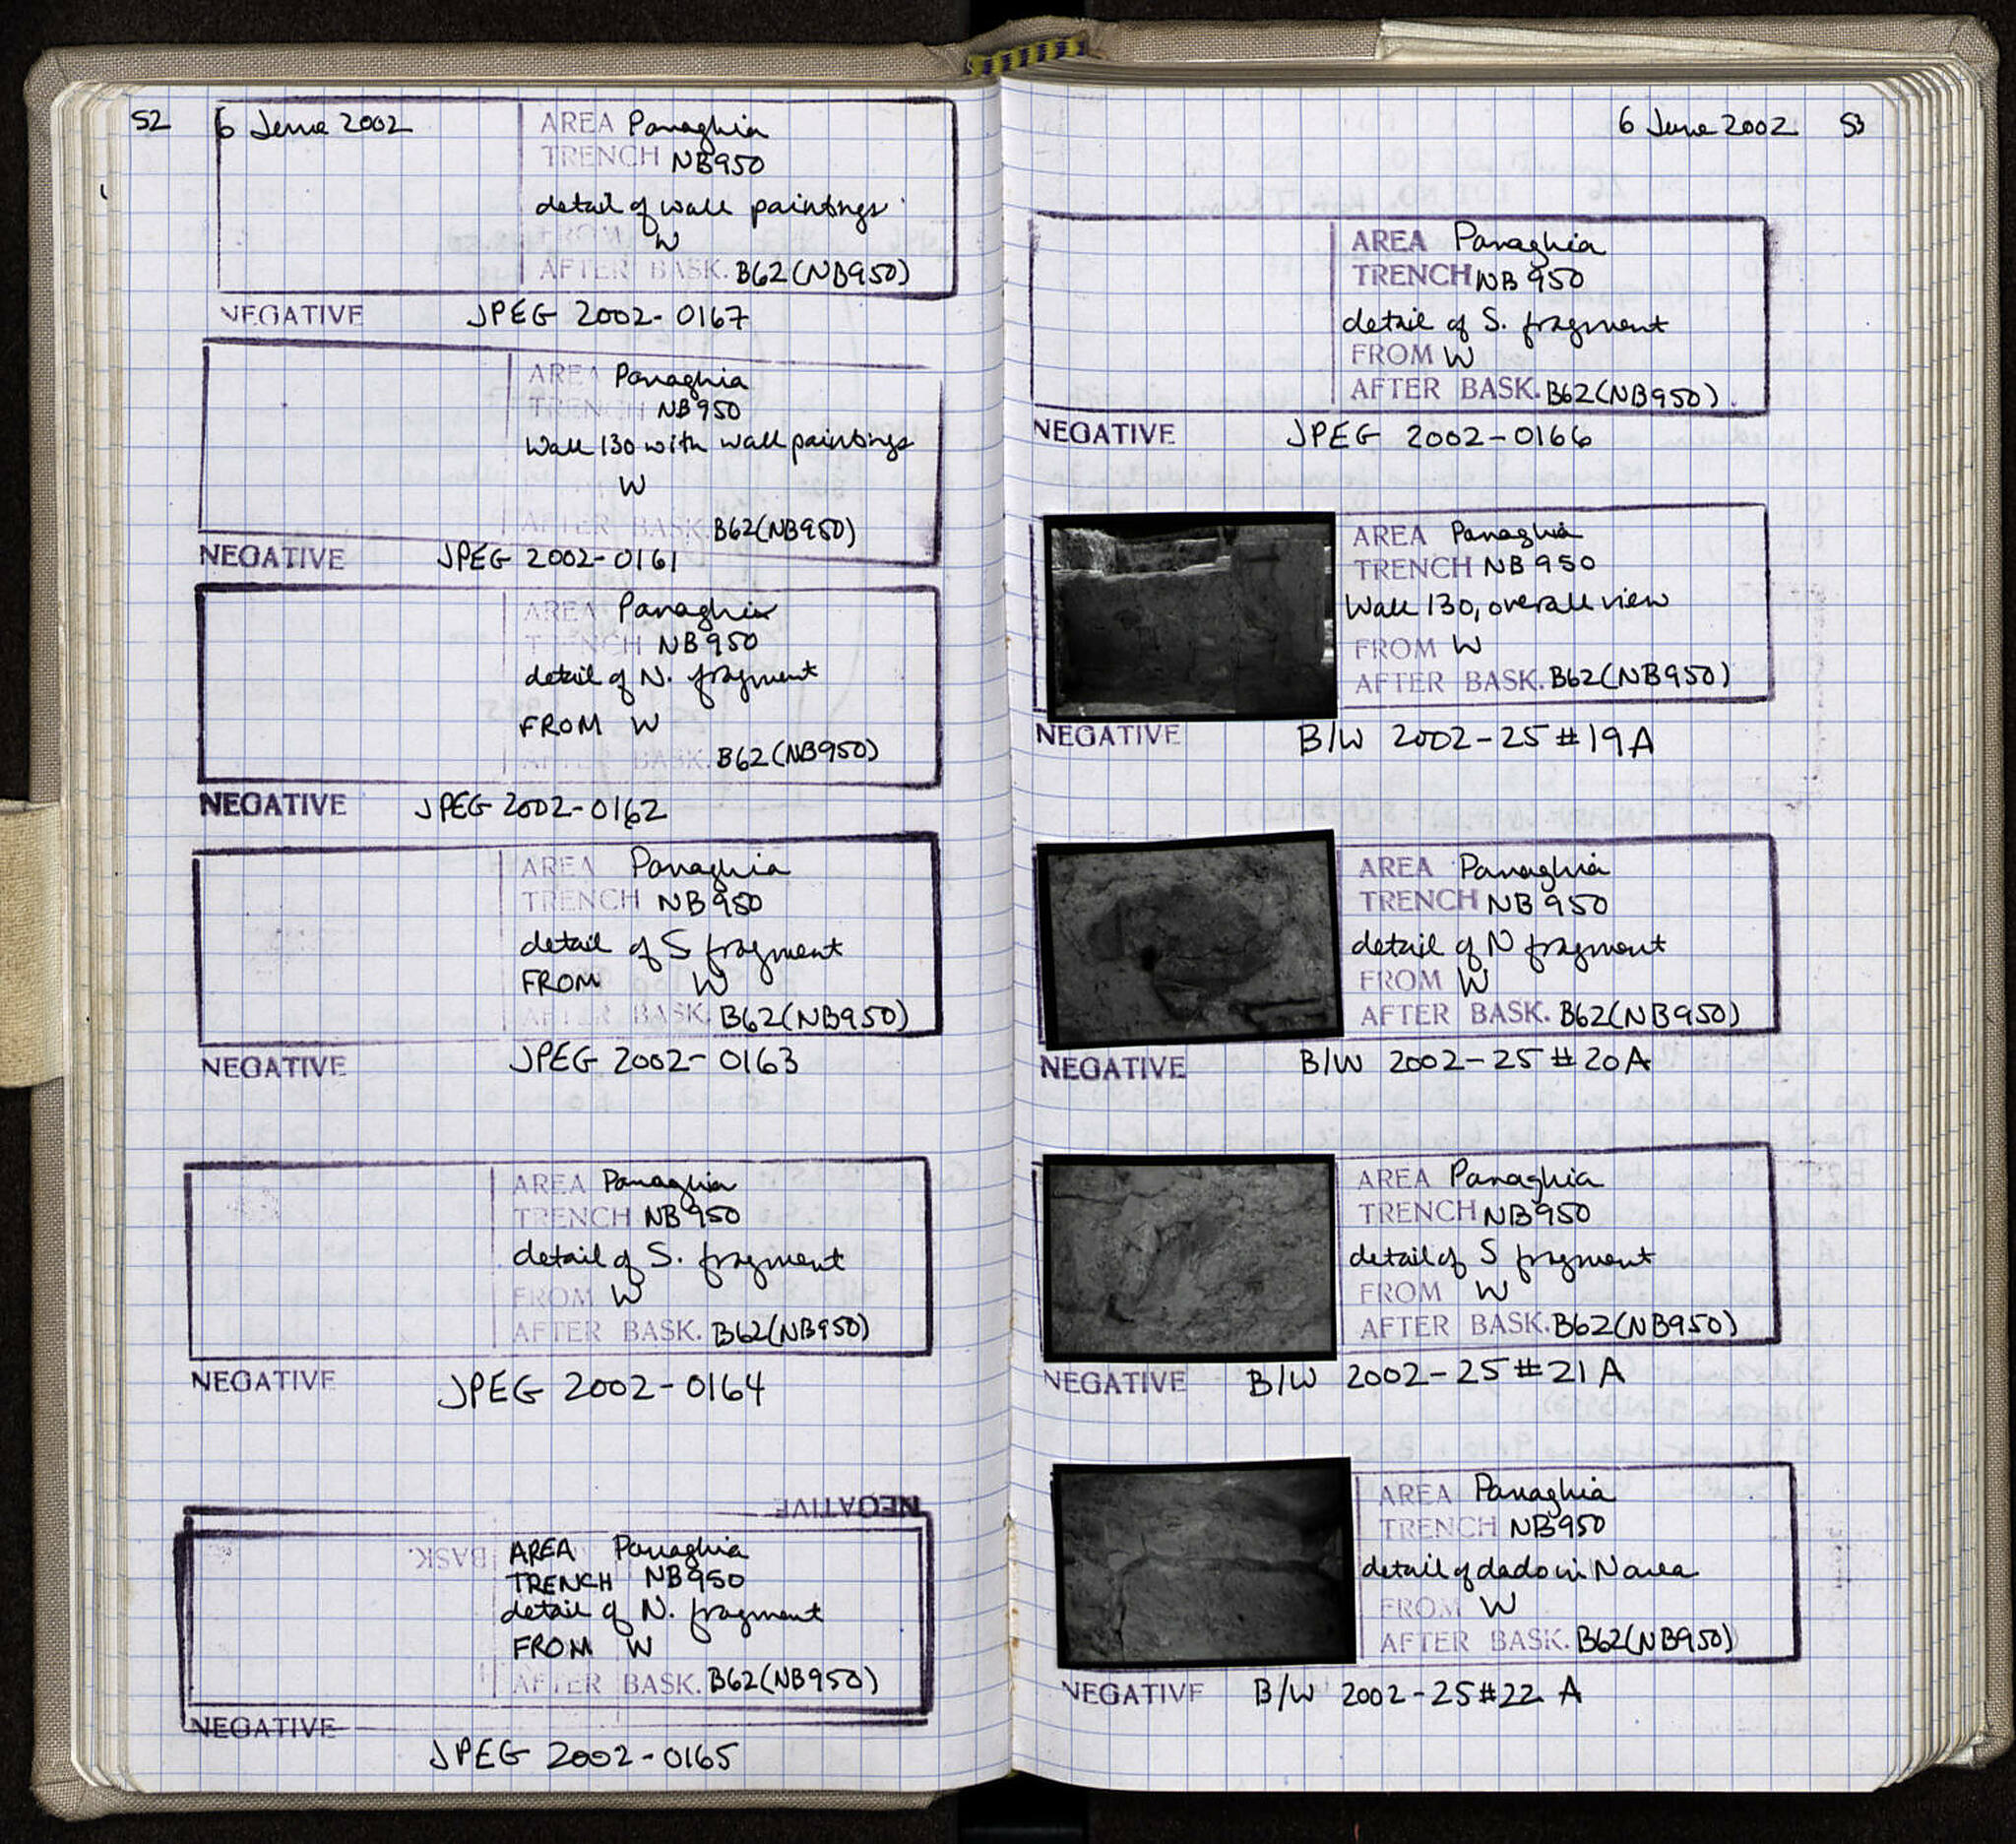 52
6 June 2002
AREA Panaghia
TRENCH NB950
detail of wall paintings
FROM W
AFTER BASK. B62(NB950)
NEGATIVE JPEG 2002-0167
AREA Panaghia
TRENCH NB950
Wall 130 with wall paintings
W
AFTER BASK. B62(NB950)
NEGATIVE JPEG 2002-0161
AREA Panaghia
TRENCH NB950
detail of N. fragment
FROM W
AFTER BASK. B62(NB950)
NEGATIVE JPEG 2002-0162
AREA Panaghia
TRENCH NB950
detail of S fragment
FROM W
AFTER BASK. B62(NB950)
NEGATIVE JPEG 2002-0163
AREA Panaghia
TRENCH NB950
detail of S. fragment
FROM W
AFTER BASK. B62(NB950)
NEGATIVE JPEG 2002-0164
NEGATIVE
BASK.
AREA Panaghia
TRENCH NB950
detail of N. fragment
FROM W
AFTER BASK. B62(NB950)
NEGATIVE
JPEG 2002-0165
6 June 2002 53
AREA Panaghia
TRENCH NB950
detail of S. fragment
FROM W
AFTER BASK. B62(NB950).
NEGATIVE JPEG 2002-0166
AREA Panaghia
TRENCH NB950
Wall 130, overall view
FROM W
AFTER BASK. B62(NB950)
NEGATIVE B/W 2002-25 #19A
AREA Panaghia
TRENCH NB950
detail of N fragment
FROM W
AFTER BASK. B62(NB950)
NEGATIVE B/W 2002-25 #20A
AREA Panaghia
TRENCH NB950
detail of S fragment
FROM W
AFTER BASK. B62(NB950)
NEGATIVE B/W 2002-25 #21A
AREA Panaghia
TRENCH NB950
detail of dado in N area
FROM W
AFTER BASK. B62(NB950)
NEGATIVE B/W 2002-25 #22 A